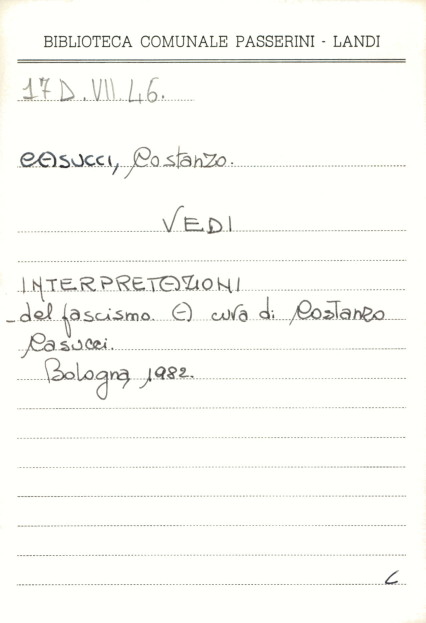 BIBLIOTECA COMUNALE PASSERINI - LANDI
17 D. VII. 46.
CASUCCI, Costanzo.
VEDI
INTERPRETAZIONI
del fascismo. A cura di Costanzo
Casucci.
Bologna, 1982.
C